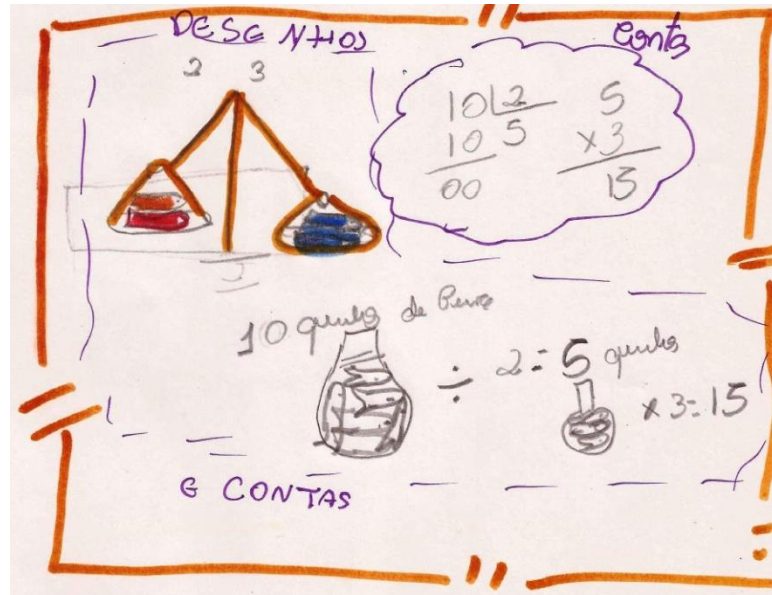 DESENHOS
Conta
2 3
10 2
10 5
00
5
x3
15
10 quilos de
÷ 2 = 5 quilos
x 3 = 15
E CONTAS